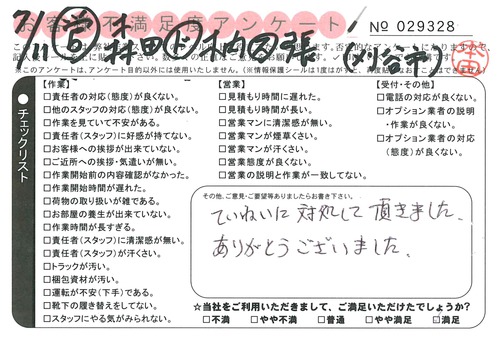 お客様不満足度アンケート
№ 029328
7/11
(刈谷市)
※このアンケートは、アンケート目的以外には使用いたしません。
チェックリスト
【作業】
□責任者の対応(態度)が良くない。
□他のスタッフの対応(態度)が良くない。
□作業を見ていて不安がある。
□責任者(スタッフ)に好感が持てない。
□お客様への挨拶が出来ていない。
□ご近所への挨拶・気遣いが無い。
□作業開始前の内容確認がなかった。
□作業開始時間が遅れた。
□荷物の取り扱いが雑である。
□お部屋の養生が出来ていない。
□作業時間が長すぎる。
□責任者(スタッフ)に清潔感が無い。
□責任者(スタッフ)が汗くさい。
□トラックが汚い。
□梱包資材が汚い。
□運転が不安(下手)である。
□靴下の履き替えをしてない。
□スタッフにやる気がみられない。
【営業】
□見積もり時間に遅れた。
□見積もり時間が長い。
□営業マンに清潔感が無い。
□営業マンが煙草くさい。
□営業マンが汗くさい。
□営業態度が良くない。
□営業の説明と作業が一致してない。
【受付・その他】
□電話の対応が良くない。
□オプション業者の説明
・作業が良くない。
□オプション業者の対応
(態度)が良くない。
その他、ご意見・ご要望等ありましたらお書き下さい。
ていねいに対処して頂きました。
ありがとうございました。
☆当社をご利用いただきまして、ご満足いただけたでしょうか?
□不満 □やや不満 □普通 □やや満足 □満足